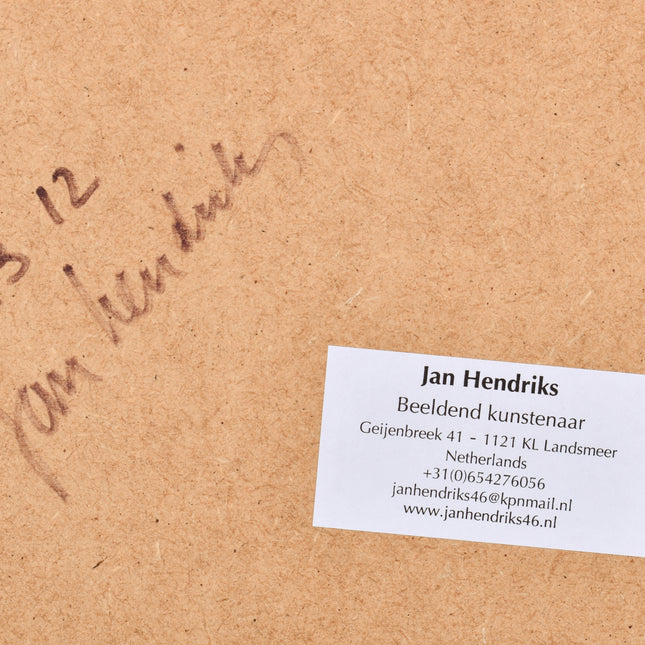 3 12
Jan Hendriks
Jan Hendriks
Beeldend kunstenaar
Geijenbreek 41 - 1121 KL Landsmeer
Netherlands
+31(0)654276056
janhendriks46@kpnmail.nl
www.janhendriks46.nl